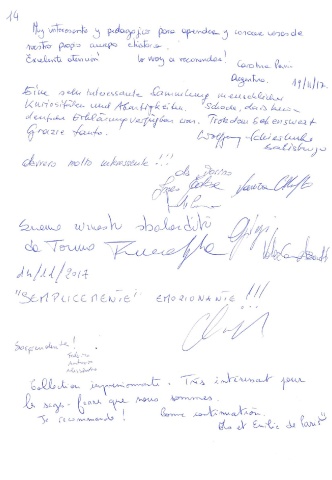 14
Muy interesante y pedagógico para aprender y conocer cosas de
nuestro propio cuerpo
Excelente atención lo voy a recomendar!
Carolina
Argentina. 19/4/17.
Eine sehr interessante Sammlung menschlicher
Kuriositäten und Abartigkeiten. Schade, dass keine
deutsche Erklärung verfügbar war. Trotzdem sehenswert
Grazie tanto. Wolfgang
davvero molto interessante!!!
da Torino
siamo rimasti sbalorditi
da Torino
14/11/2017
"SEMPLICEMENTE" EMOZIONANTE!!!
Sorprendente!
Collection impressionnante. Très intéressant pour
les sages-femmes que nous sommes.
Je recommande! Bonne continuation.
et Emilie de Paris